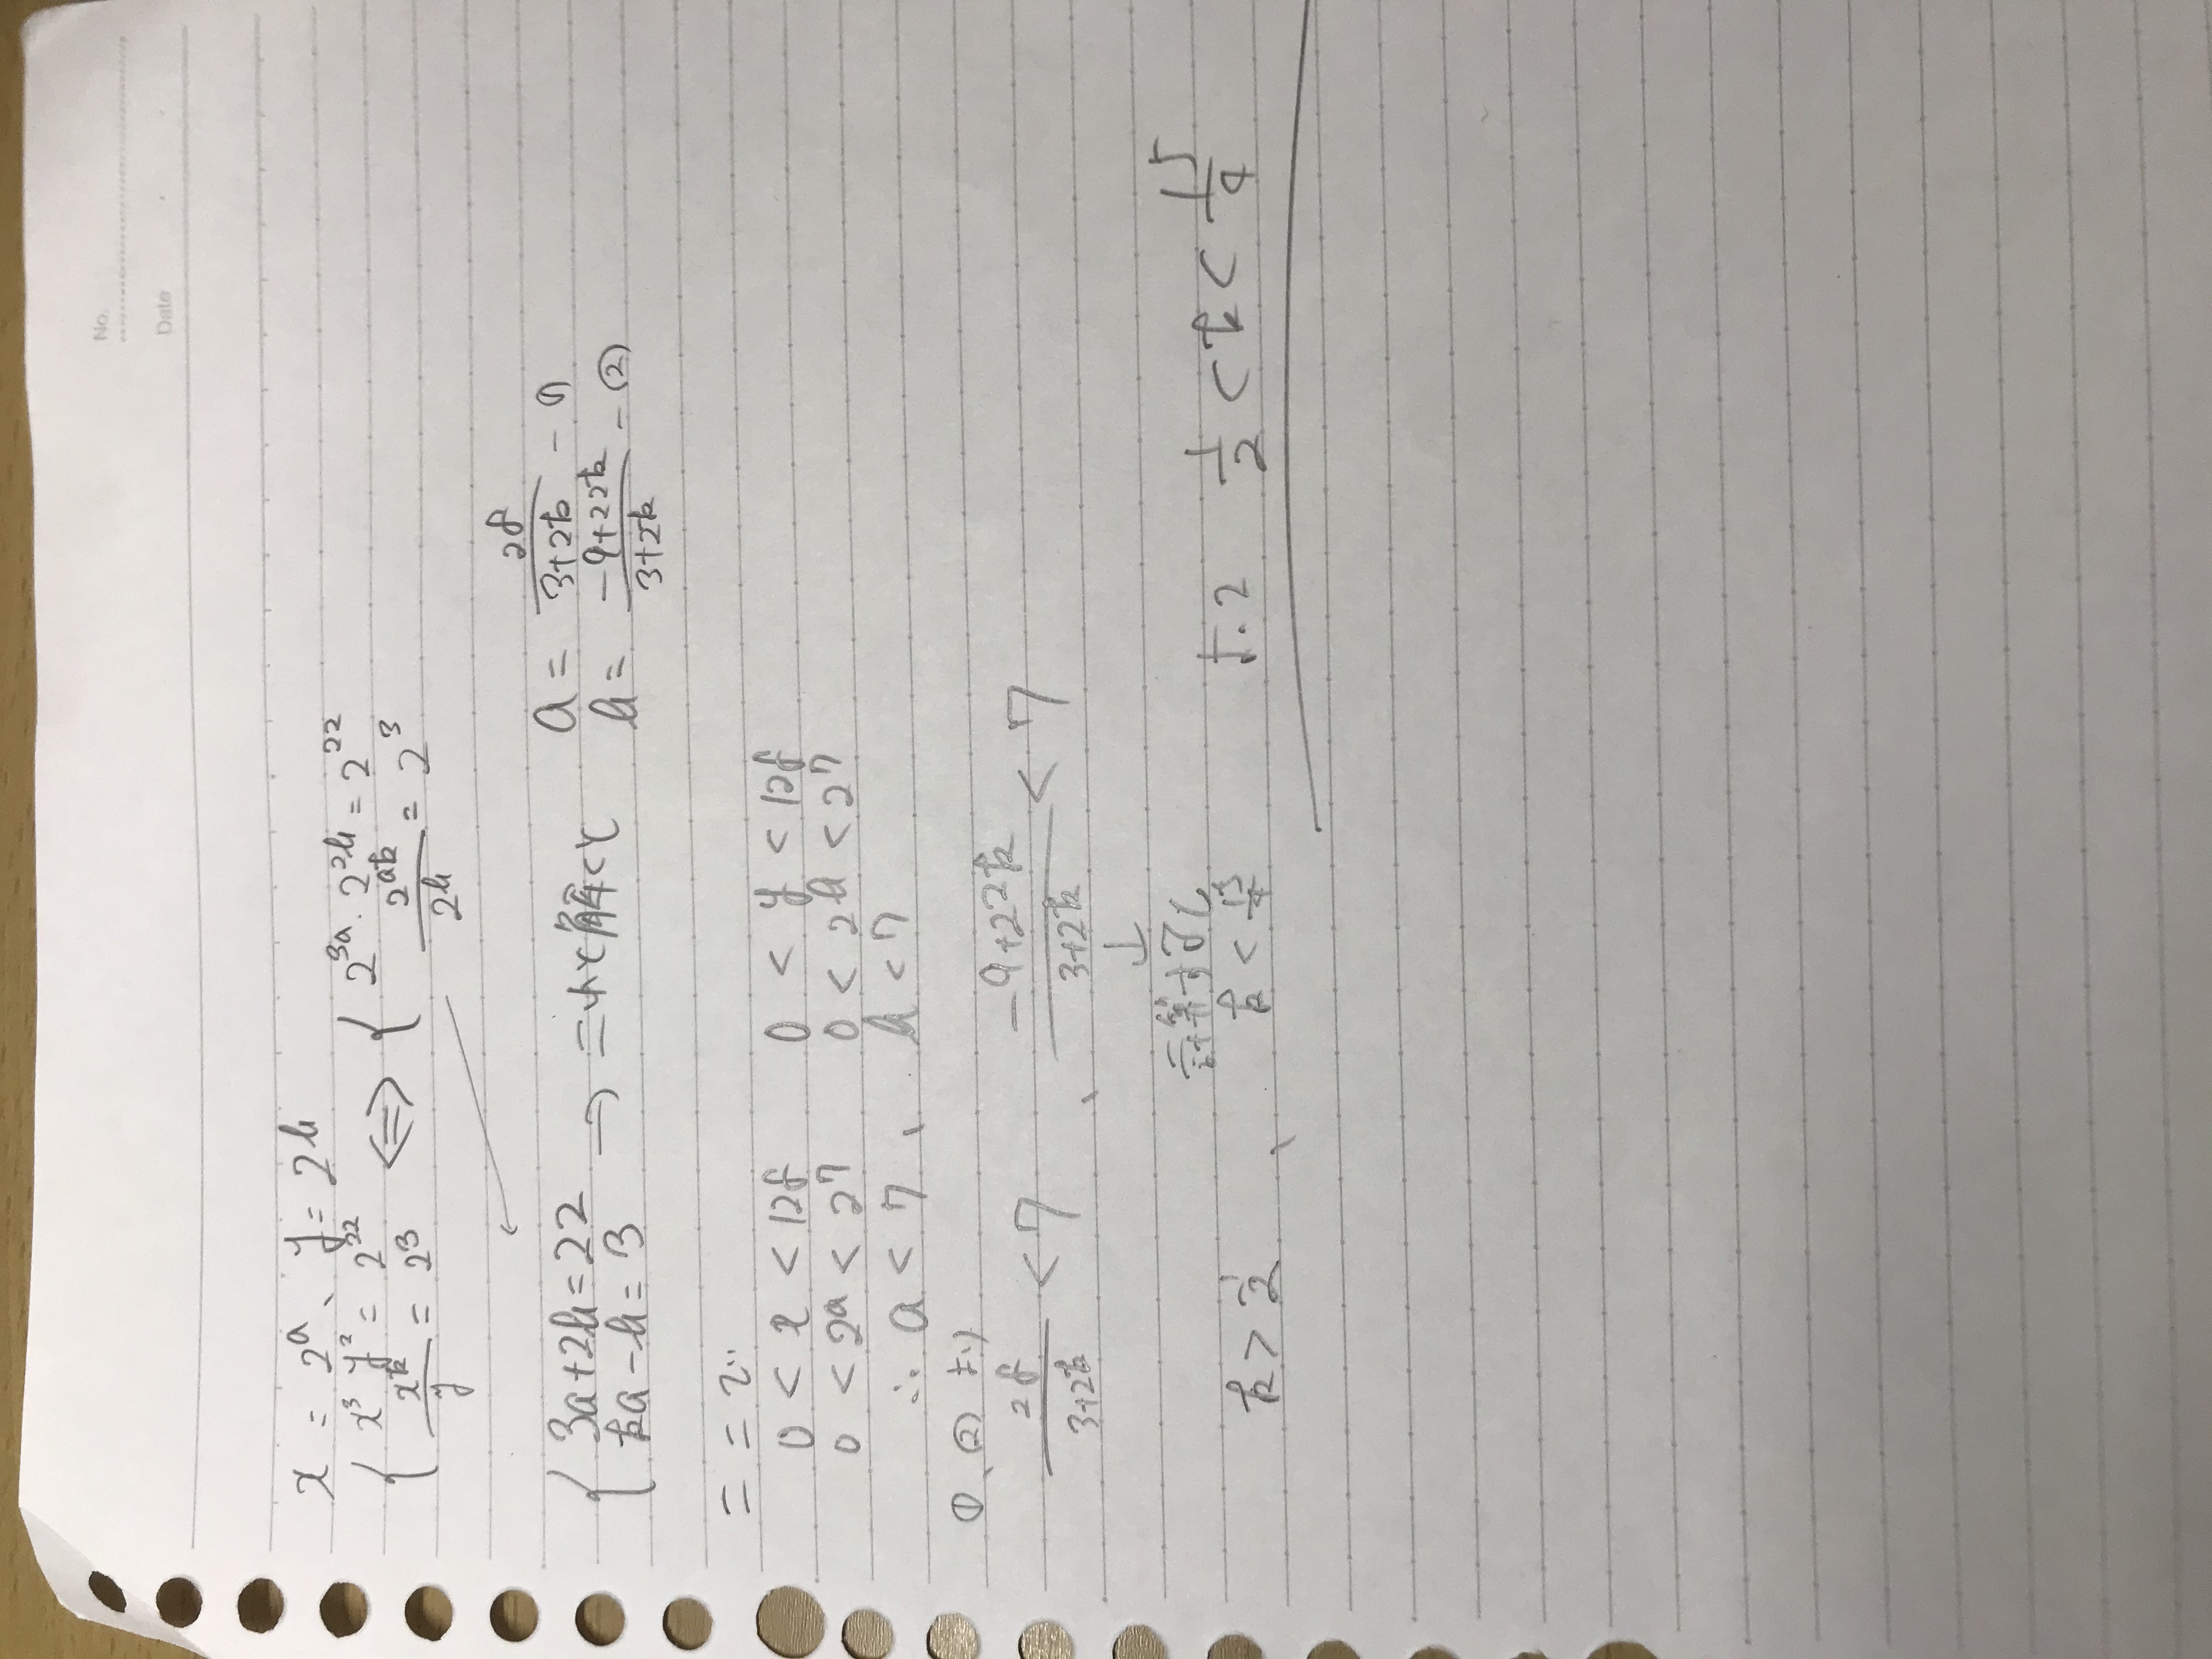 No.
Date
x = 2^a、y = 2^b
{ x³y² = 2^22 ⇔ { 2^3a・2^2b = 2^22
x^k/y = 2³    2^ak/2^b = 2³
{ 3a+2b=22 → これを解くと a = 28/(3+2k) - ①
ka-b=3    b = (-9+22k)/(3+2k) - ②
ここで
0 < x < 128    0 < y < 128
0 < 2^a < 2^7    0 < 2^b < 2^7
∴ a < 7 、 b < 7
①、②より
28/(3+2k) < 7 、 (-9+22k)/(3+2k) < 7
↓
計算する
k > 1/2 、 k < 15/4    よって 1/2 < k < 15/4